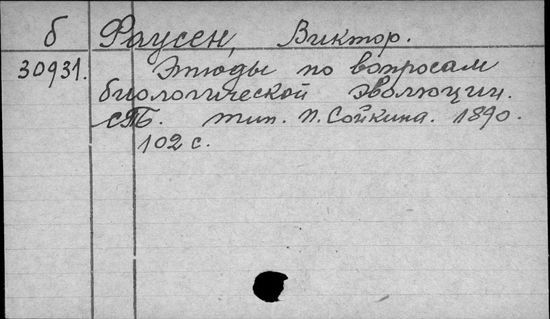 б Фаусек, Виктор.
30931. Этюды по вопросам
биологической эволюции.
СПБ. тип. П. Сойкина. 1890.
102 с.